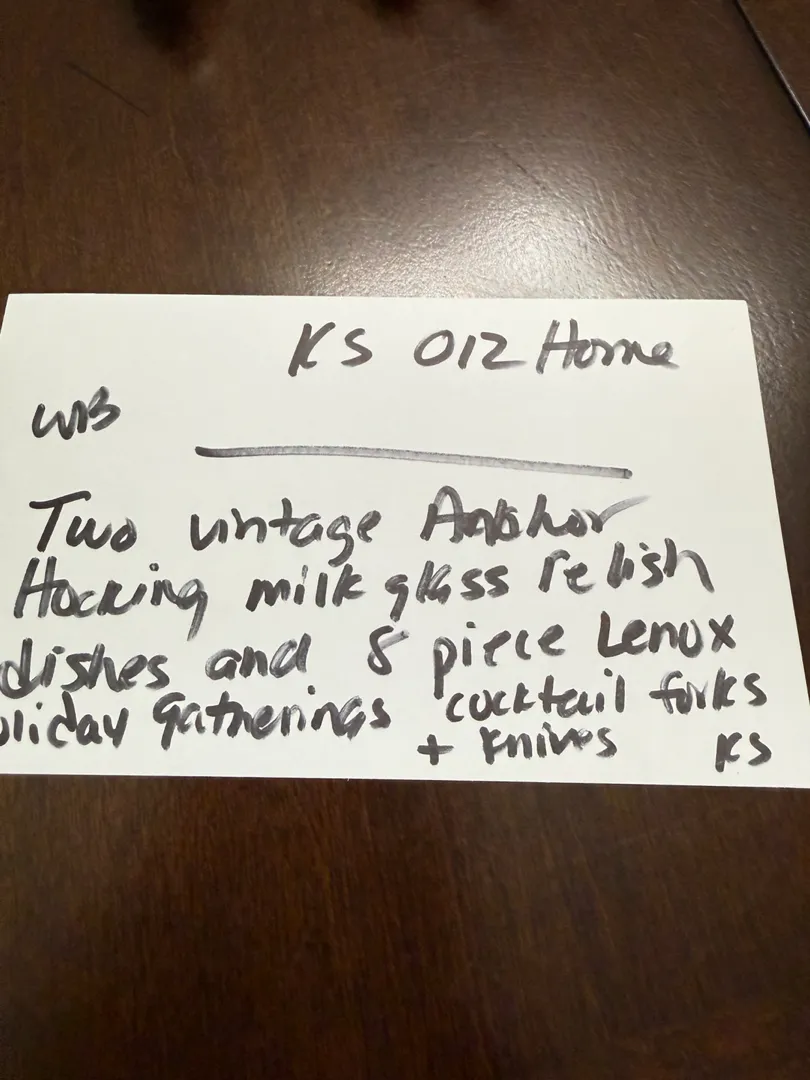 KS 012 Home
WB
Two vintage Anbhor
Hocking milk glass relish
dishes and 8 piece Lenox
oliday Gatherings cocktail forks
+ knives KS